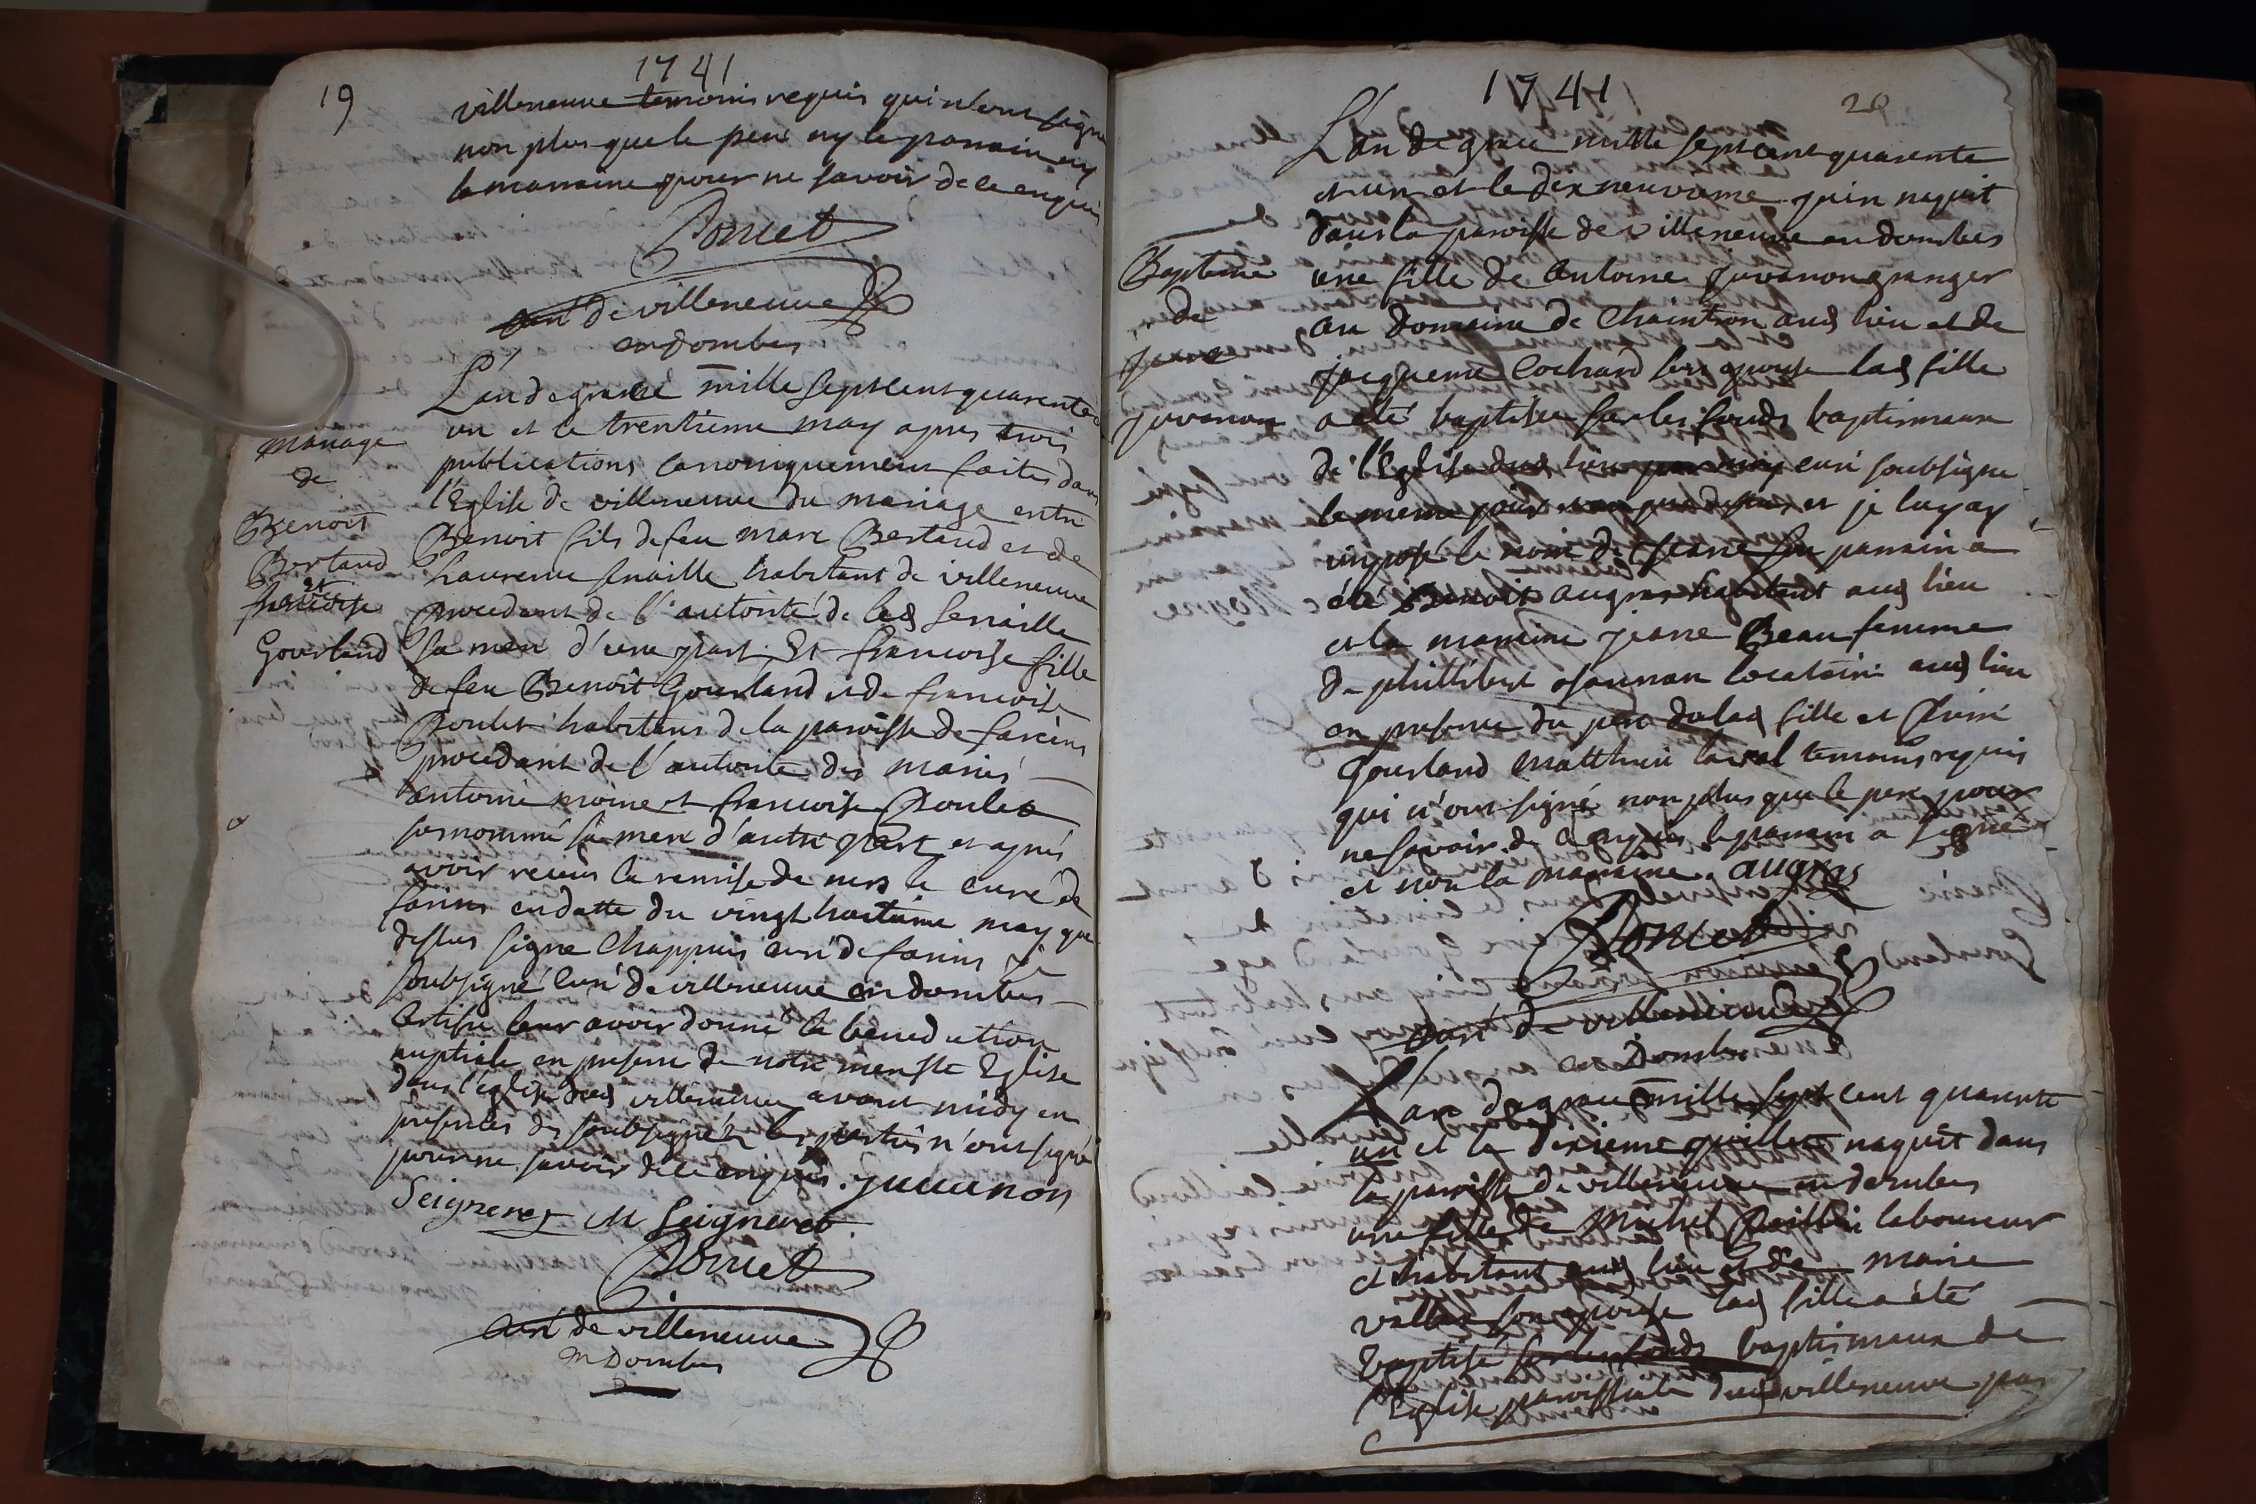 1741
19
villeneuve temoins requis qui n'ont signé
non plus que le pere ny le parrain ny
la marraine pour ne savoir de ce enquis
Poncet
curé de villeneuve
en dombes
mariage
de
Benoit
Bertaud
et
francoise
Gourland
L'an de grace mille sept cent quarente
un et le trentieme may apres trois
publications canoniquement faites dans
l'Eglise de villeneuve du mariage entre
Benoit fils de feu marc Bertaud et de
Laurence senaille habitant de villeneuve
procedant de l'autorité de lad senaille
sa mere d'une part Et francoise fille
de feu Benoit Gourland et de francoise
habitans de la paroisse de fareins
procedant de l'autorite des mariés
antoine moine et francoise
sa mere d'autre part et apres
avoir receu la remise de mrs le curé de
farins en datte du vingt huitieme may que
dessus signe Chappuis curé de farins je
soubsigné curé de villeneuve en dombes
certifie leur avoir donné la benediction
nuptiale en presence de notre mere ste Eglise
dans l'eglise dud villeneuve avant midy en
presences des soubsignés les parties n'ont signé
pour ne savoir de ce enquis. juuenon
Seigneret M Seigneret
Poncet
curé de villeneuve
en Dombes
1741
20
Bapteme
de
Jeane
juvanon
L'an de grace mille sept cent quarente
et un et le dix neuvieme juin nequit
dans la paroisse de villeneuve en dombes
une fille de antoine juvanon granger
au domaine de Chaintron aud lieu et de
jacqueme Cochard son epouse lad fille
a eté baptisée sur les fonds baptismaux
de l'Eglise dud lieu par moy curé soubsigne
le meme jour que dessus et je luy ay
imposé le nom de Jeane son parrain a
été Benoit augras habitant aud lieu
et la marraine jeane Beau femme
de phillibert locataire aud lieu
en presence du pere de lad fille et Pierre
Gourland matthieu laval temoins requis
qui n'ont signé non plus que le pere pour
ne savoir de ce enquis le parrain a signé
et non la marraine. augras
Poncet
curé de villeneuve
en Dombes
L'an de grace mille sept cent quarente
un et le dixieme juillet naquit dans
la paroisse de villeneuve en dombes
une fille de Michel laboureur
et habitant aud lieu et de marie
son epouse lad fille a été
baptisé sur les fonds baptismaux de
l'Eglise paroissiale dud villeneuve par